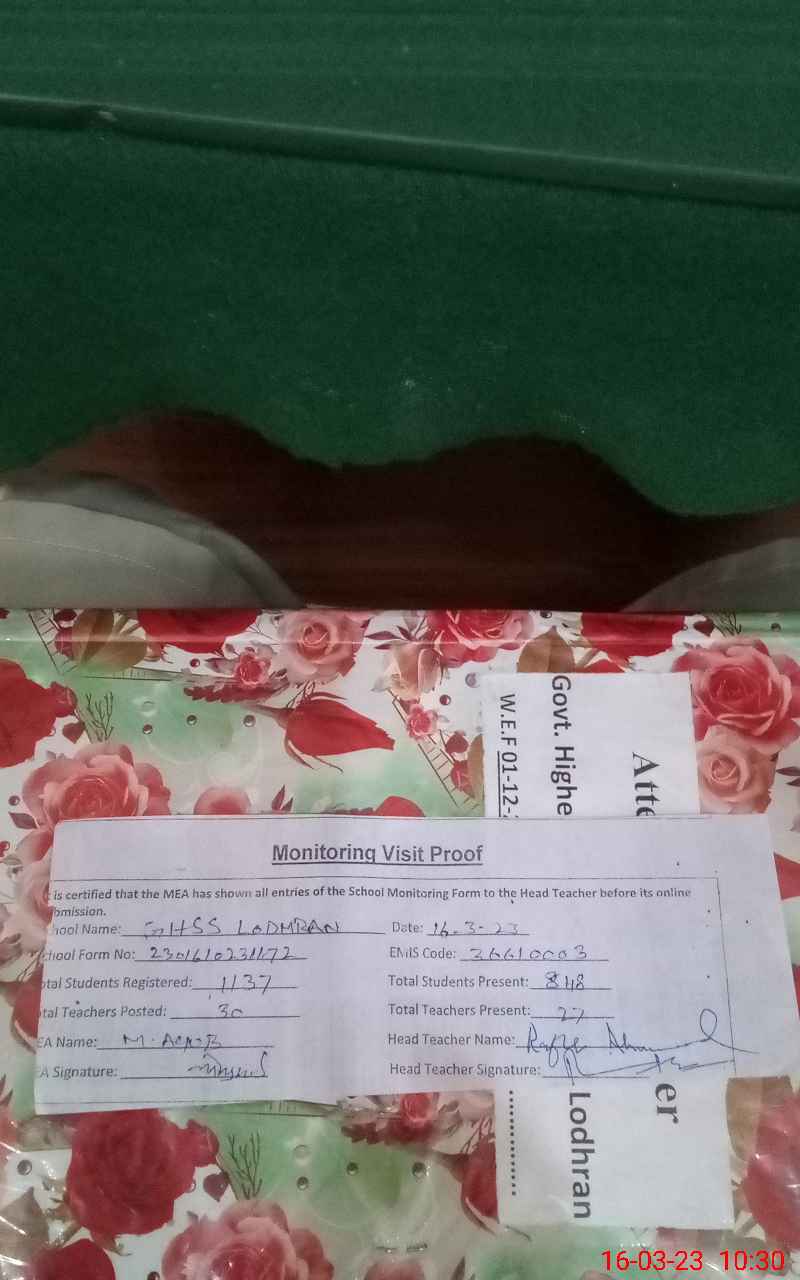 Govt. Highe
W.E.F 01-12-
Atte
Monitoring Visit Proof
is certified that the MEA has shown all entries of the School Monitoring Form to the Head Teacher before its online
bmission.
hool Name: GHSS LODHRAN Date: 16-3-23
chool Form No: EMIS Code: 36610003
otal Students Registered: 1137 Total Students Present: 848
otal Teachers Posted: 30 Total Teachers Present: 27
EA Name: M. Head Teacher Name:
EA Signature: Head Teacher Signature:
er
Lodhran
16-03-23 10:30